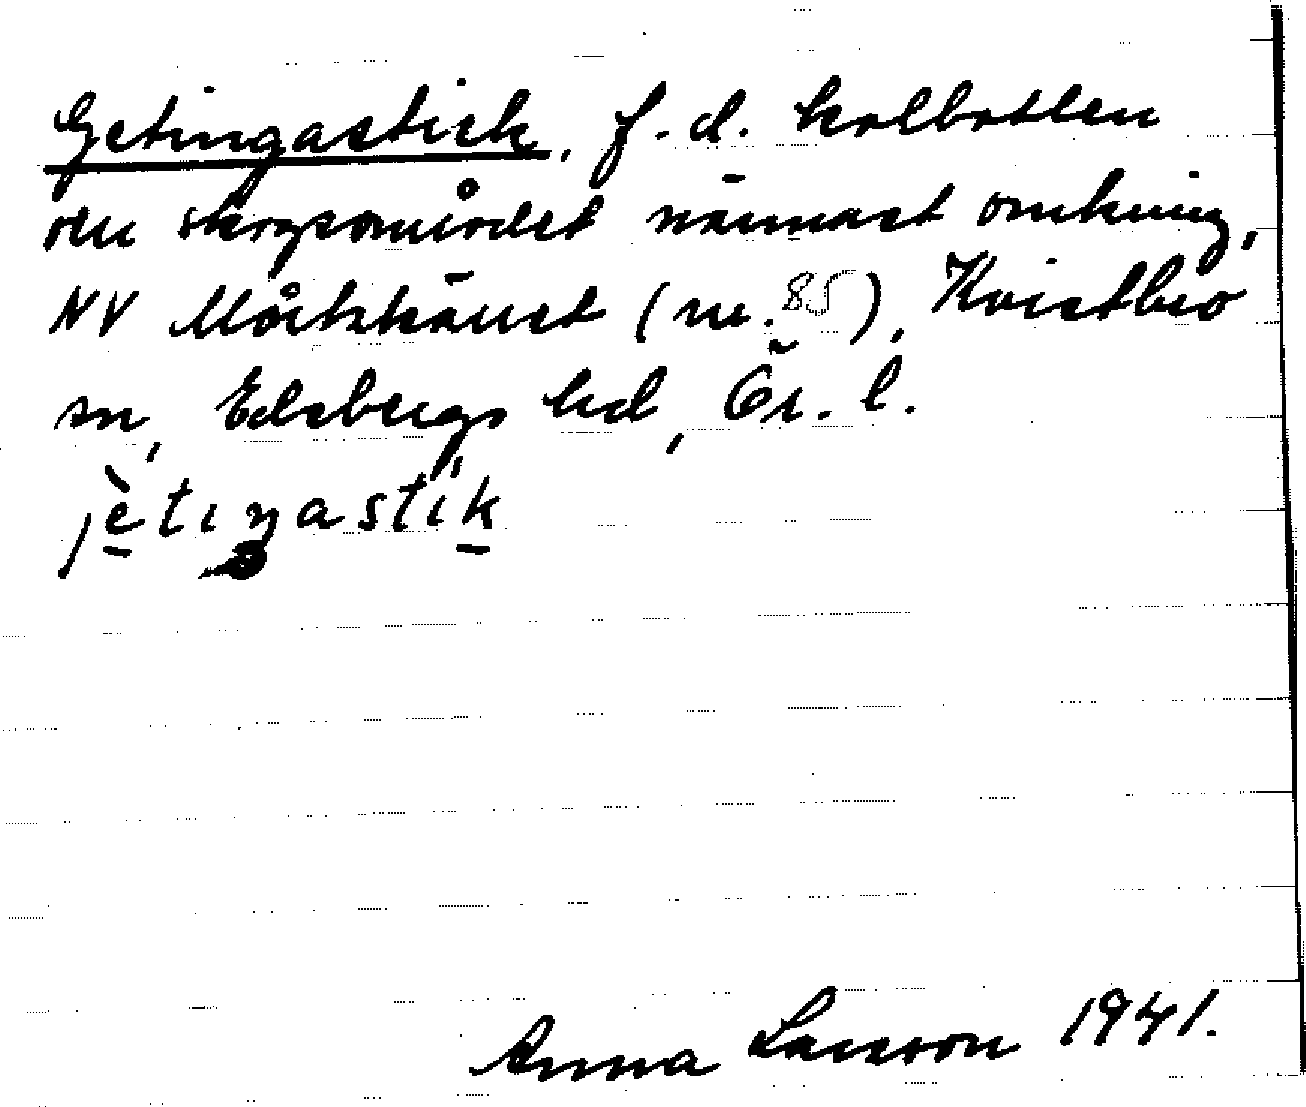 Getingastick, f.d. kolbotten
o skogsområdet närmast omkring,
NV Mörkkärret (nr. 85), Kvistbro
sn, Edsbergs hd, Ör. l.
jètiŋastik
Anna Larsson 1941.